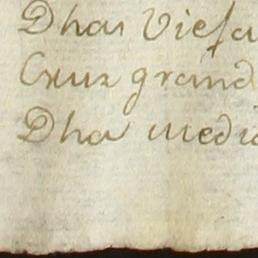 Dhas Viesa
Cruz grand
Dha media